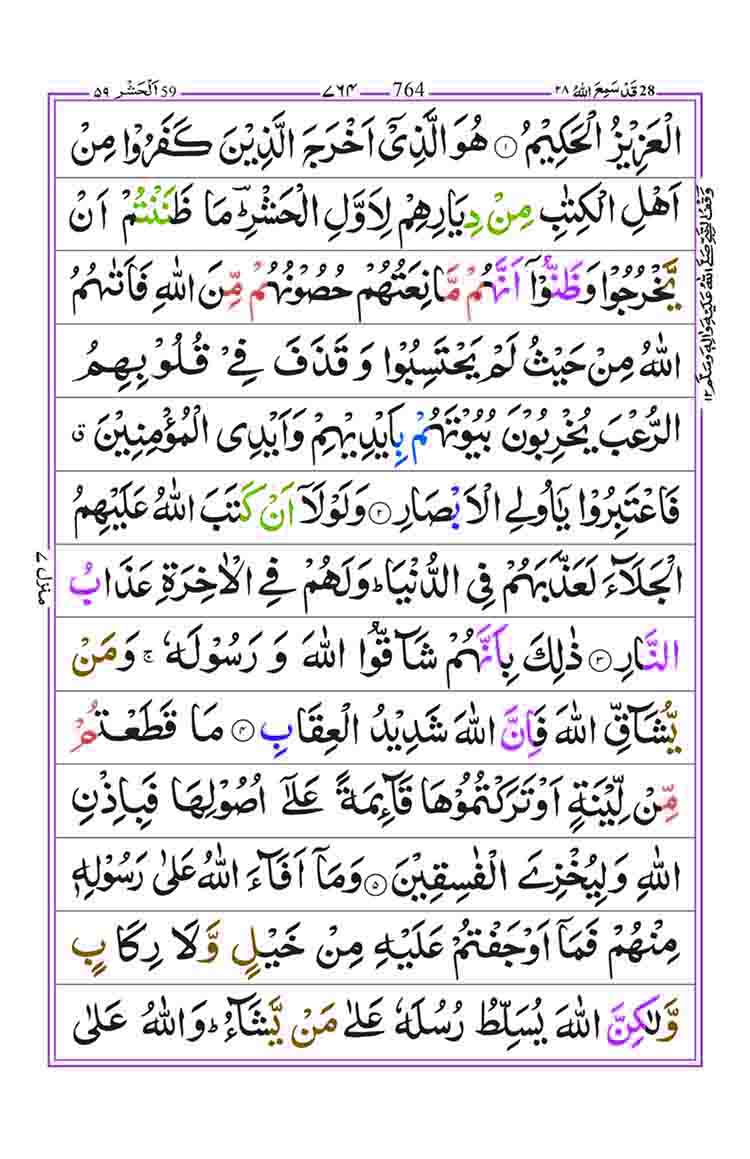 28 قَدْ سَمِعَ اللّٰهُ ۲۸ 764 ۷۶۴ 59 اَلْحَشْر ۵۹
الْعَزِیْزُ الْحَكِیْمُ ۝۱ هُوَ الَّذِیْۤ اَخْرَجَ الَّذِیْنَ كَفَرُوْا مِنْ
اَهْلِ الْكِتٰبِ مِنْ دِیَارِهِمْ لِاَوَّلِ الْحَشْرِ ؔؕ مَا ظَنَنْتُمْ اَنْ
یَّخْرُجُوْا وَ ظَنُّوْۤا اَنَّهُمْ مَّانِعَتُهُمْ حُصُوْنُهُمْ مِّنَ اللّٰهِ فَاَتٰىهُمُ
اللّٰهُ مِنْ حَیْثُ لَمْ یَحْتَسِبُوْا وَ قَذَفَ فِیْ قُلُوْبِهِمُ
الرُّعْبَ یُخْرِبُوْنَ بُیُوْتَهُمْ بِاَیْدِیْهِمْ وَ اَیْدِی الْمُؤْمِنِیْنَ ق
فَاعْتَبِرُوْا یٰۤاُولِی الْاَبْصَارِ ۝۲ وَ لَوْ لَاۤ اَنْ كَتَبَ اللّٰهُ عَلَیْهِمُ
الْجَلَآءَ لَعَذَّبَهُمْ فِی الدُّنْیَا ؕ وَ لَهُمْ فِی الْاٰخِرَةِ عَذَابُ
النَّارِ ۝۳ ذٰلِكَ بِاَنَّهُمْ شَآقُّوا اللّٰهَ وَ رَسُوْلَهٗ ۚ وَ مَنْ
یُّشَآقِّ اللّٰهَ فَاِنَّ اللّٰهَ شَدِیْدُ الْعِقَابِ ۝۴ مَا قَطَعْتُمْ
مِّنْ لِّیْنَةٍ اَوْ تَرَكْتُمُوْهَا قَآىِٕمَةً عَلٰۤى اُصُوْلِهَا فَبِاِذْنِ
اللّٰهِ وَ لِیُخْزِیَ الْفٰسِقِیْنَ ۝۵ وَ مَاۤ اَفَآءَ اللّٰهُ عَلٰى رَسُوْلِهٖ
مِنْهُمْ فَمَاۤ اَوْجَفْتُمْ عَلَیْهِ مِنْ خَیْلٍ وَّ لَا رِكَابٍ
وَّ لٰكِنَّ اللّٰهَ یُسَلِّطُ رُسُلَهٗ عَلٰى مَنْ یَّشَآءُ ؕ وَ اللّٰهُ عَلٰى
وقف النبی صلی اللہ علیہ والہ وسلم ۱۲
منزل ۷